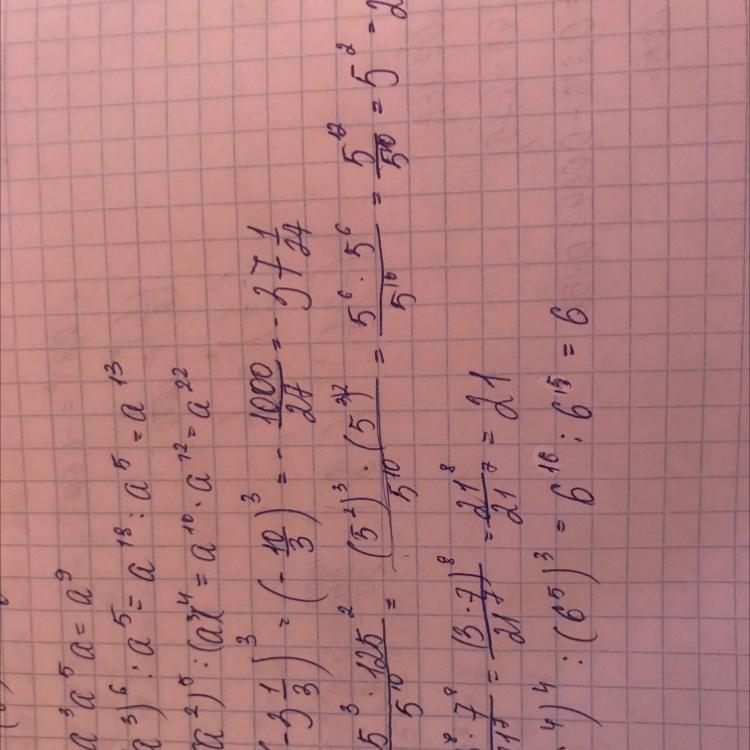 a³a⁵a = a⁹
a³)⁶ : a⁵ = a¹⁸ : a⁵ = a¹³
a²)⁵ : (a³)⁴ = a¹⁰ · a¹² = a²²
-3 1/3)³ = (- 10/3)³ = - 1000/27 = - 37 1/27
5³ · 125²/5¹⁰ = (5²)³ · (5³)²/5¹⁰ = 5⁶ · 5⁶/5¹⁰ = 5¹²/5¹⁰ = 5² = 2
⁸ · 7⁸/21⁷ = (3 · 7)⁸/21⁷ = 21⁸/21⁷ = 21
⁴)⁴ : (6⁵)³ = 6¹⁶ : 6¹⁵ = 6